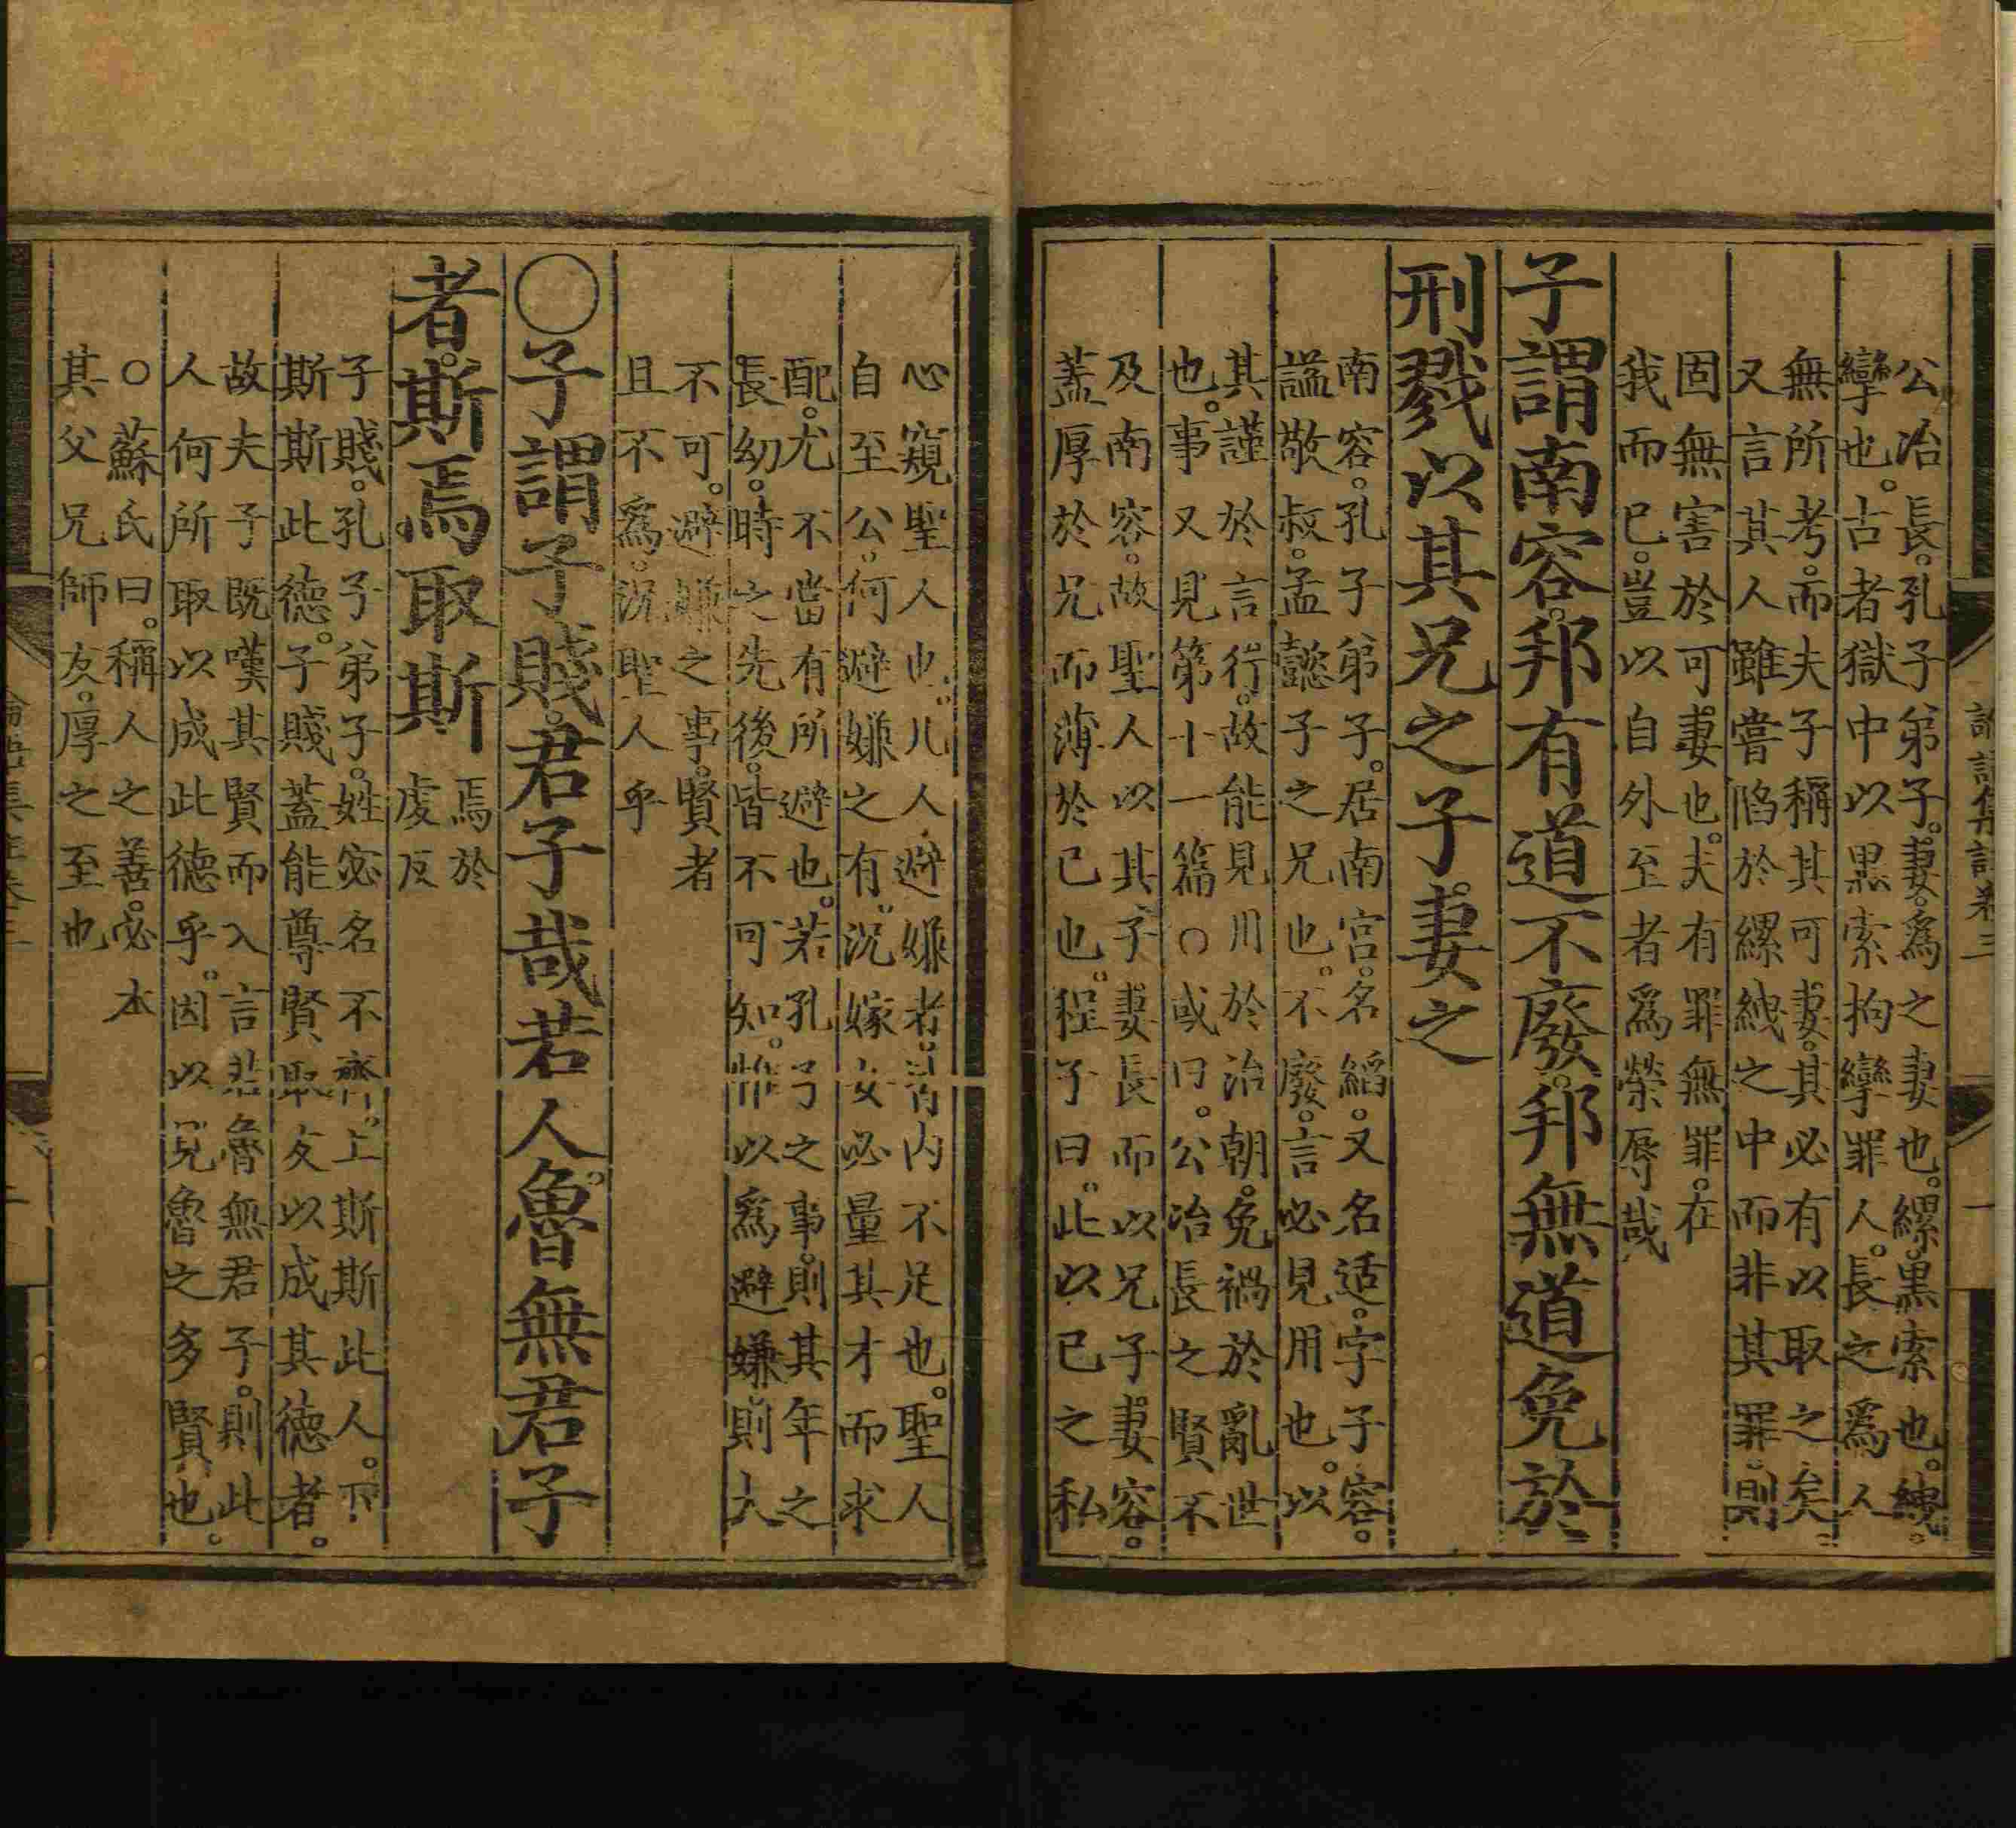 公冶長。孔子弟子。妻。爲之妻也。縲。黒索也。絏。
攣也。古者獄中以黒索拘攣罪人。長之爲人
無所考。而夫子稱其可妻。其必有以取之矣。
又言其人雖嘗陷於縲絏之中而非其罪。則
固無害於可妻也。夫有罪無罪。在
我而已。豈以自外至者爲榮辱哉
子謂南容。邦有道不廢。邦無道免於
刑戮以其兄之子妻之
南容。孔子弟子。居南宮。名縚。又名适。字子容。
諡敬叔。孟懿子之兄也。不廢。言必見用也。以
其謹於言行。故能見用於治朝。免禍於亂世
也。事又見第十一篇○或曰。公冶長之賢不
及南容。故聖人以其子妻長而以兄子妻容。
蓋厚於兄而薄於己也。程子曰。此以己之私
心窺聖人也。凡人避嫌者。皆內不足也。聖人
自至公。何避嫌之有。況嫁女必量其才而求
配。尤不當有所避也。若孔子之事。則其年之
長幼。時之先後。皆不可知。惟以爲避嫌則大
不可。避嫌之事。賢者
且不爲。況聖人乎
○子謂子賤。君子哉若人。魯無君子
者。斯焉取斯
焉於
虔反
子賤。孔子弟子。姓宓名不齊。上斯斯此人。下
斯斯此德。子賤蓋能尊賢取友以成其德者。
故夫子既嘆其賢而入言若魯無君子。則此
人何所取以成此德乎。因以見魯之多賢也。
○蘇氏曰。稱人之善。必本
其父兄師友。厚之至也